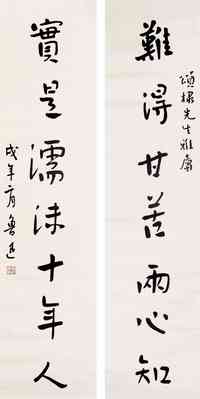 頌棣先生雅屬
難得甘苦兩心知
實是濡沫十年人
戌年二月魯迅